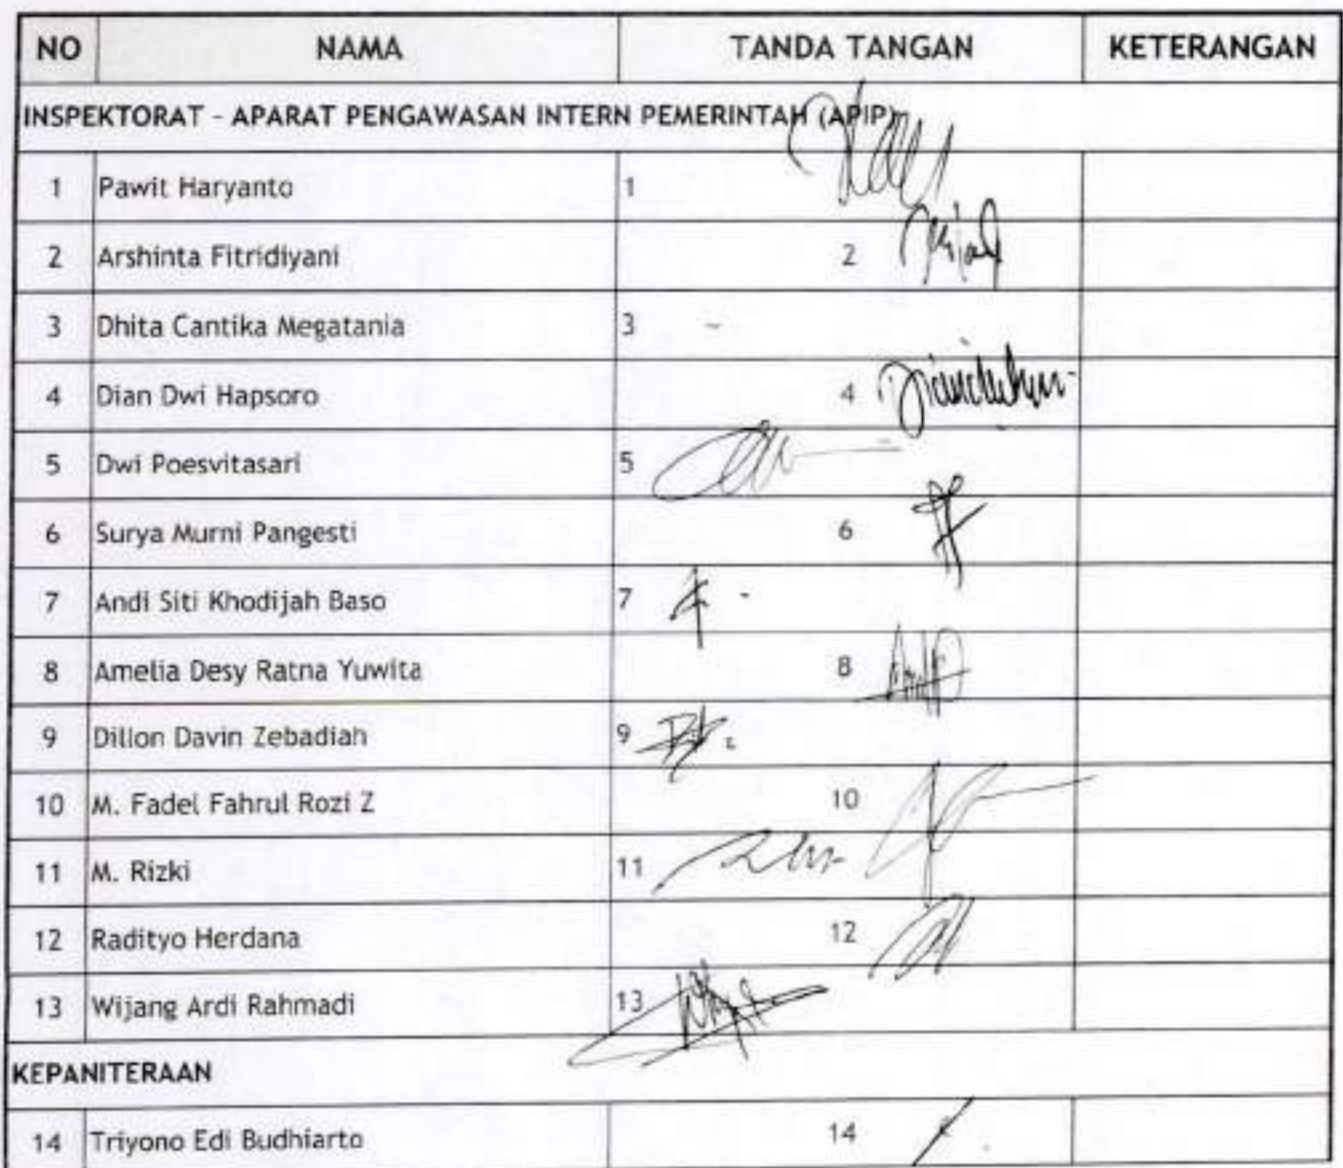 NO NAMA TANDA TANGAN KETERANGAN
INSPEKTORAT - APARAT PENGAWASAN INTERN PEMERINTAH (APIP)
1 Pawit Haryanto 1
2 Arshinta Fitridiyani 2
3 Dhita Cantika Megatania 3 -
4 Dian Dwi Hapsoro 4
5 Dwi Poesvitasari 5
6 Surya Murni Pangesti 6
7 Andi Siti Khodijah Baso 7
8 Amelia Desy Ratna Yuwita 8
9 Dillon Davin Zebadiah 9
10 M. Fadel Fahrul Rozi Z 10
11 M. Rizki 11
12 Radityo Herdana 12
13 Wijang Ardi Rahmadi 13
KEPANITERAAN
14 Triyono Edi Budhiarto 14